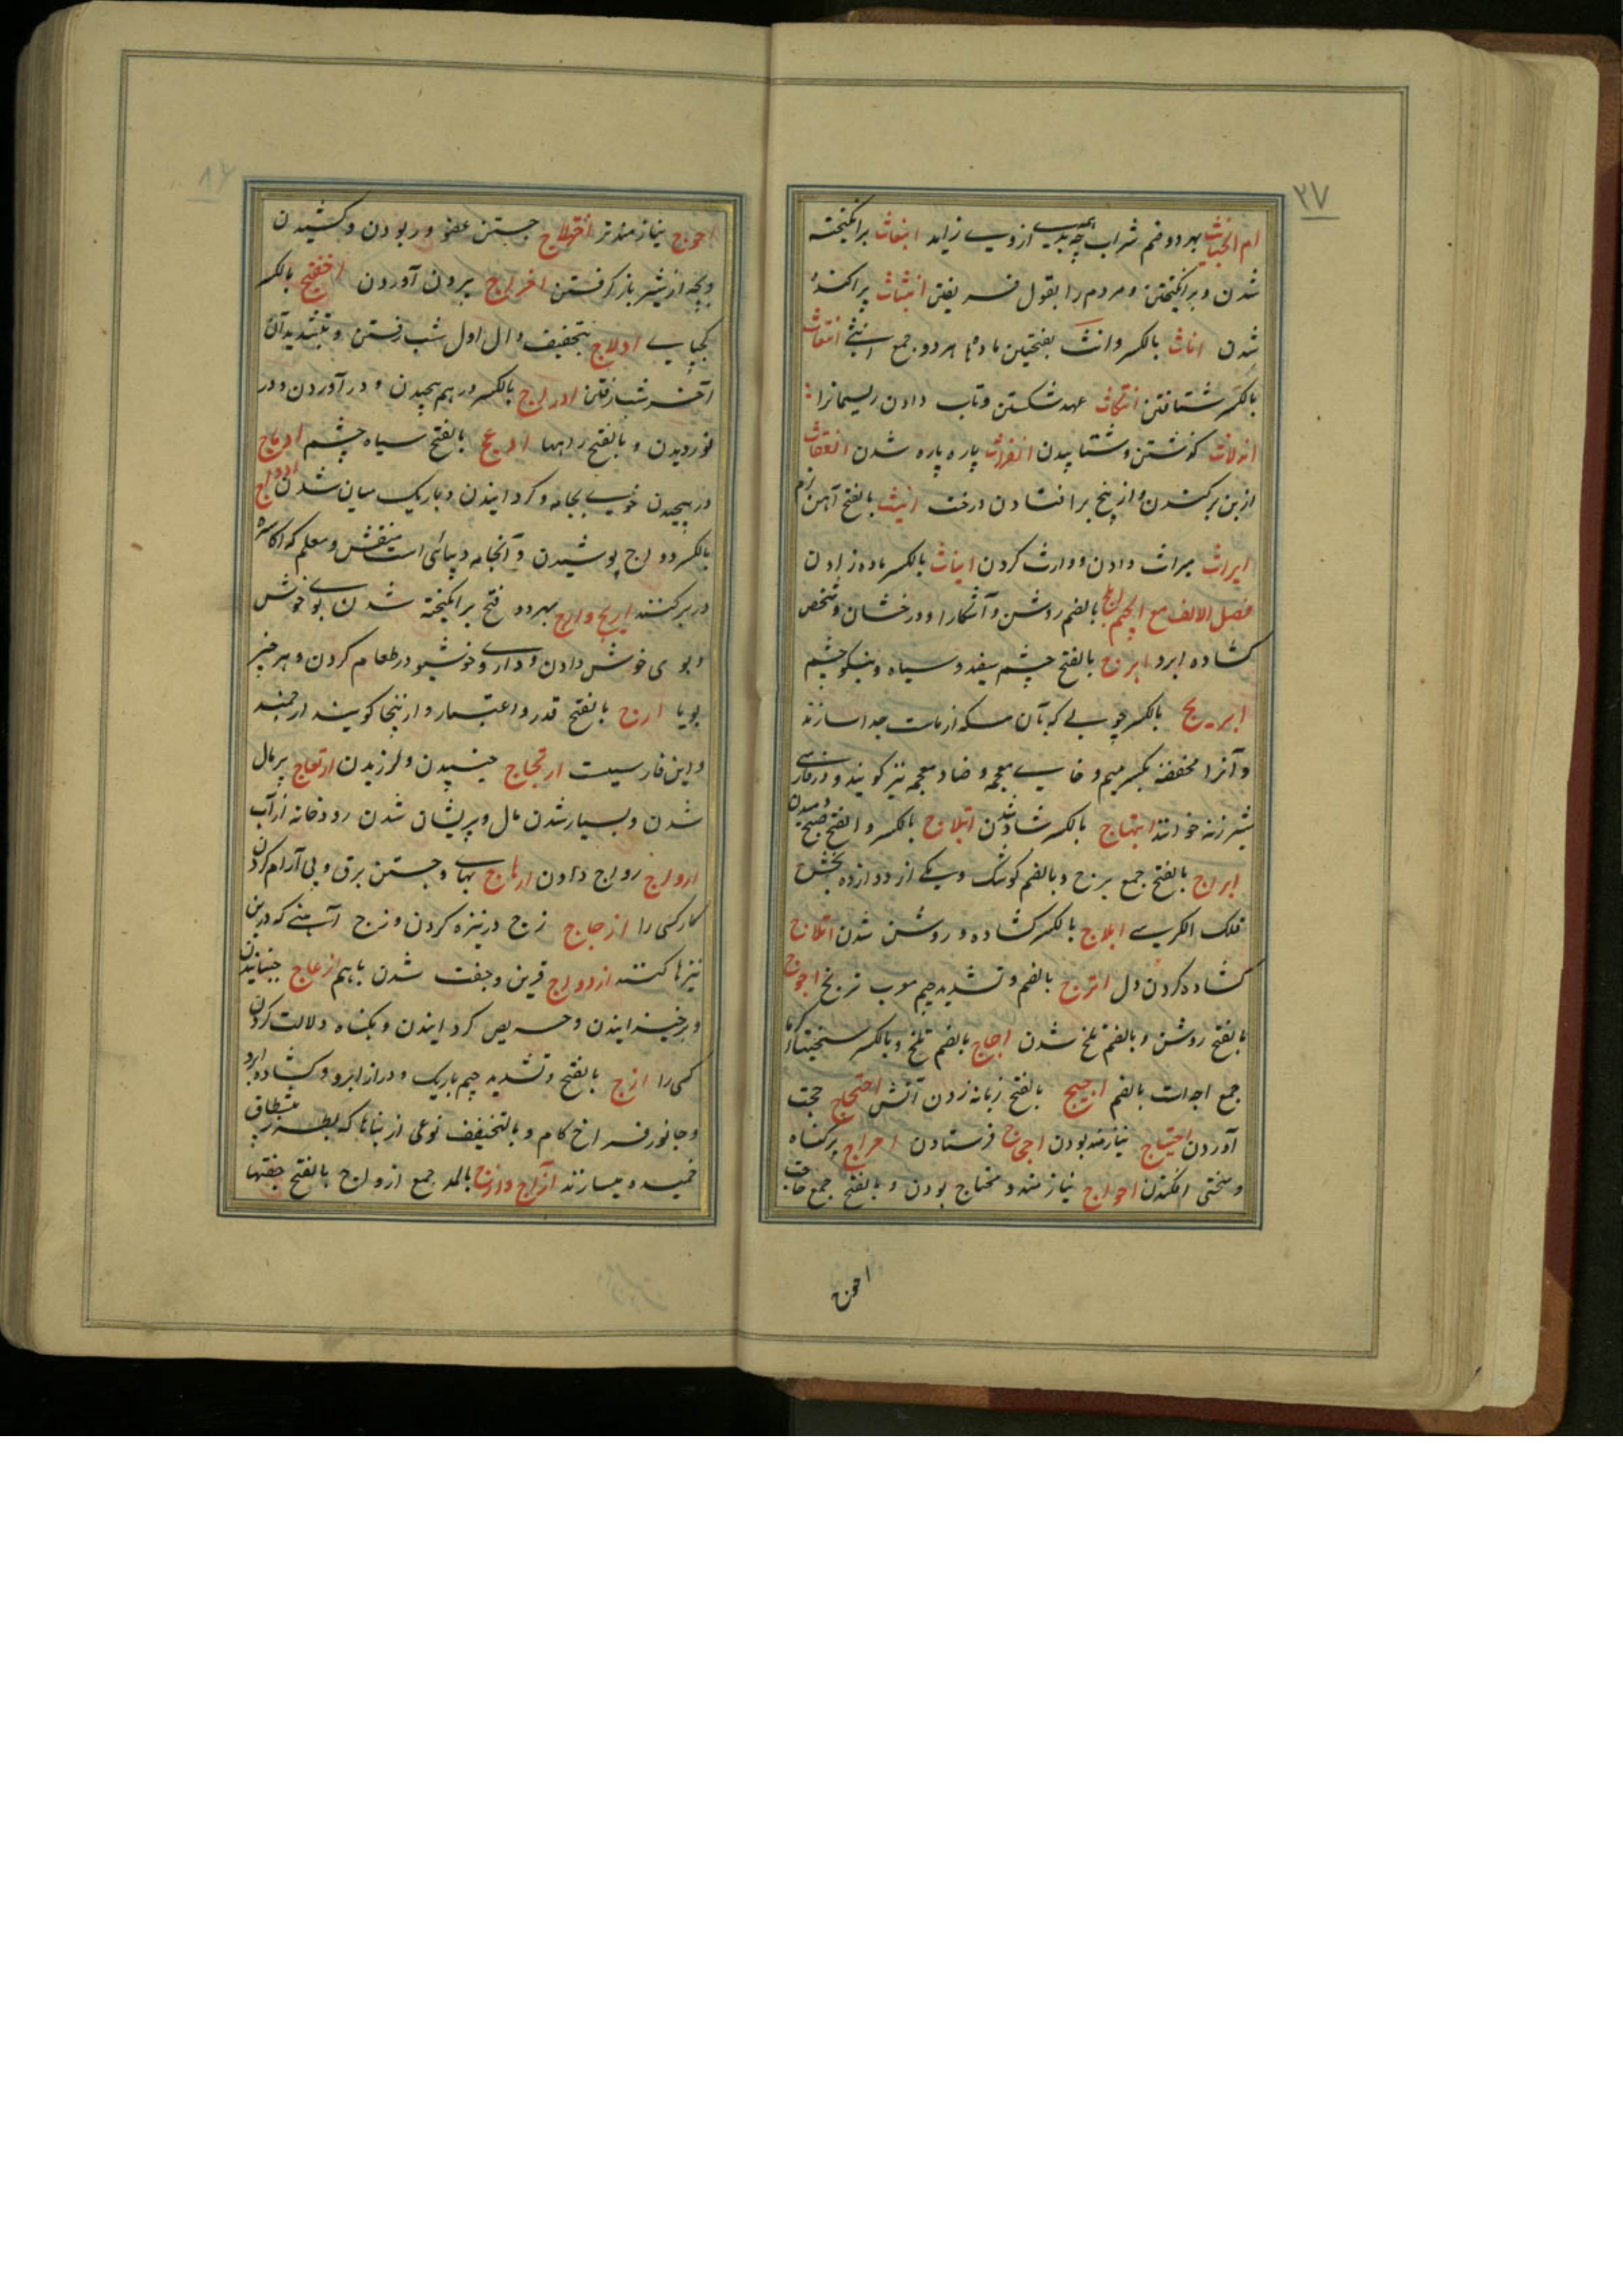 ٢٧
ام الخبائث بهر دو ضم شراب چه همه بدیها از وی زاید انبعاث برانکیخته
شدن و برانکیختن و مردم را بقول فریفتن انبثاث پراکنده
شدن اناث بالکسر و انث بفتحتین مادها هر دو جمع انثی
بالکسر شتافتن انتکاث عهد شکستن و تاب دادن ریسمانرا
کوشتن و شتابیدن انفراث پاره پاره شدن انقعاث
از بن برکندن و از بیخ برافتادن درخت انیث بالفتح آهن نرم
ایراث میراث دادن و وارث کردن ایناث بالکسر ماده زادن
فصل الالف مع الجیم ابلج بالضم روشن و آشکارا و درخشان و شخص
کشاده ابرو ابرج بالفتح چشم سفید و سیاه و نیکو چشم
ابریج بالکسر چوبی که بآن مسکه از ماست جدا سازند
و آنرا مخضنه بکسر میم و خای معجمه و ضاد معجمه نیز کویند و در فارسی
شیرزنه خوانند ابتهاج بالکسر شاد شدن ابلاج بالکسر و الفتح صبح دمیدن
ابراج بالفتح جمع برج و بالضم کوشک و یکی از دوازده بخش
فلک الکرسی ابلاج بالکسر کشاده و روشن شدن اثلاج
کشاده کردن دل اترج بالضم و تشدید جیم معرب ترنج اجوج
بالفتح روشن و بالضم تلخ شدن اجاج بالضم تلخ و بالکسر
جمع اجه است بالضم اجیج بالفتح زبانه زدن آتش احتجاج حجت
آوردن احتیاج نیازمند بودن فرستادن احراج بر کناه
و سختی افکندن احواج نیازمند و محتاج بودن و بالفتح جمع حاجت
احوج
احوج نیازمندتر اختلاج جستن عضو و ربودن و کشیدن
و بچه از شیر باز کرفتن اخراج بیرون آوردن بالکسر
ادلاج بتخفیف دال اول شب رفتن و بتشدید آن
آخر شب رفتن ادراج بالکسر در هم پیچیدن و در آوردن و در
نوردیدن و بالفتح راهها ادعج بالفتح سیاه چشم ادماج
در پیچیدن خوب بجامه و کردانیدن و باریک میان شدن
بالکسر دواج پوشیدن و آنجامه دیبائی است منقش و معلم که اکاسره
در بر کنند اریج و ارج بهر دو فتح برانکیخته شدن بوی خوش
و بوی خوش دادن و داروی خوشبو در طعام کردن و هر چیز
بویا ارج بالفتح قدر و اعتبار و ازینجا کویند ارجمند
و این فارسیست ارتجاج جنبیدن و لرزیدن ارتعاج پر مال
شدن و بسیار شدن مال و پریشان شدن رودخانه از آب
ارواج رواج دادن و جستن برق و بی آرام کردن
کار کسی را ازجاج زج در نیزه کردن و زج آهنی که در بن
نیزها کنند ازدواج قرین و جفت شدن با هم ازعاج جنبانیدن
و برخیزانیدن و حریص کردانیدن و بکناه دلالت کردن
کسی را ازج بالفتح و تشدید جیم باریک و دراز ابرو و کشاده ابرو
و جانور فراخ کام و بالتخفیف نوعی از بناها که بطرز پیشطاق
خمیده میسازند آزاج بالمد جمع ازواج بالفتح جفتها